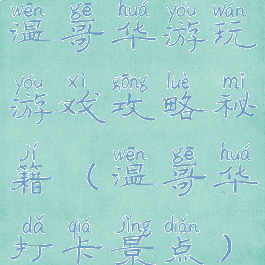 wēn gē huá yóu wán
温哥华游玩
yóu xì gōng luè mì
游戏攻略秘
jí wēn gē huá
籍（温哥华
dǎ qiǎ jǐng diǎn
打卡景点）